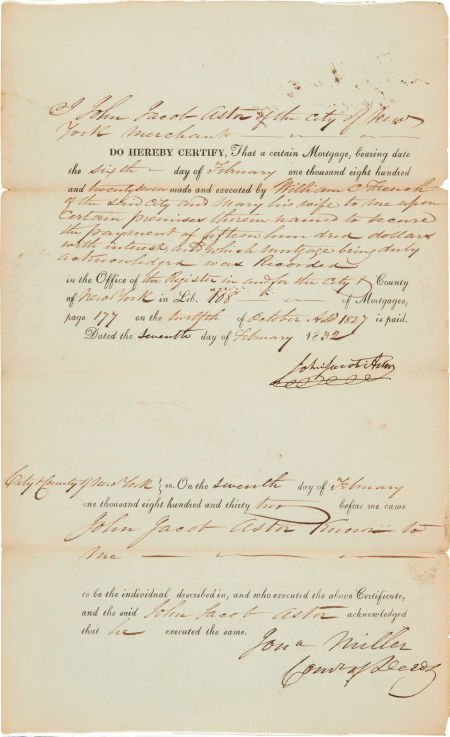 I John Jacob Astor of the City of New
York Merchant
DO HEREBY CERTIFY, That a certain Mortgage, bearing date
the sixth day of February one thousand eight hundred
and twenty seven made and executed by William C French
of the said City and Mary his wife to me upon
certain premises therein named to secure
the payment of fifteen hundred dollars
with interest and which mortgage being duly
acknowledged was Recorded
in the Office of the Register in and for the City & County
of New York in Lib. 108 of Mortgages,
page 177 on the twelfth of October AD 1827 is paid.
Dated the seventh day of February 1832
John Jacob Astor
City & County of New York } ss. On the seventh day of February
one thousand eight hundred and thirty two before me came
John Jacob Astor known to
me
to be the individual described in, and who executed the above Certificate,
and the said John Jacob Astor acknowledged
that he executed the same.
Jona Miller
Comr of Deeds